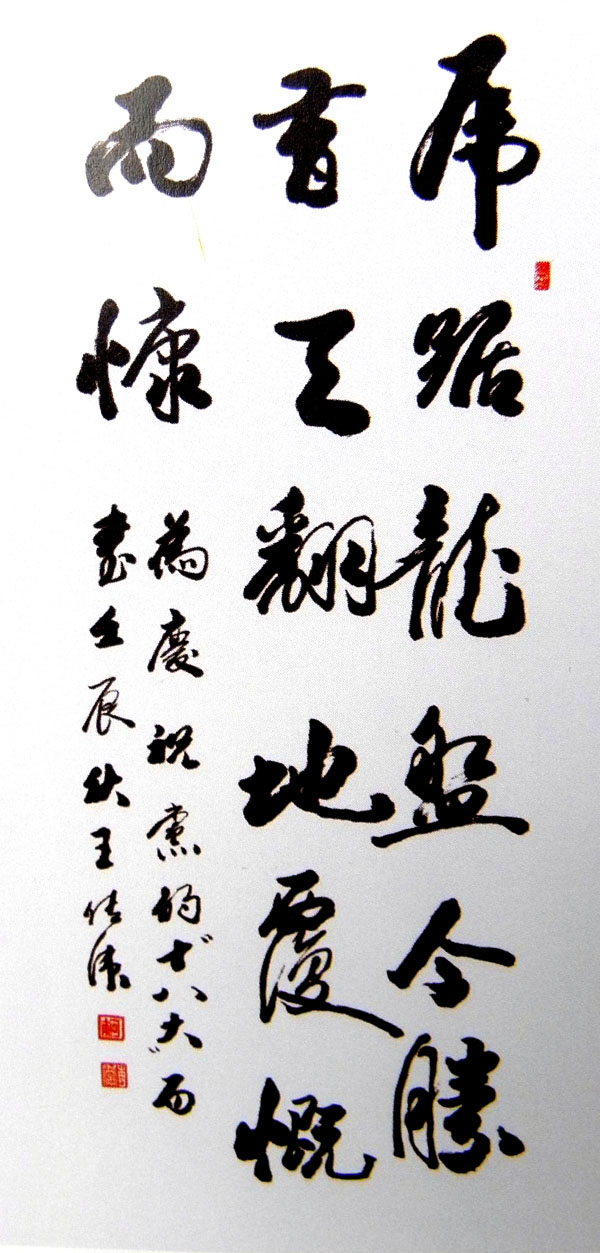 虎踞龍盤今勝
昔天翻地覆慨
而慷
為慶祝黨的“十八大”而
書壬辰秋王